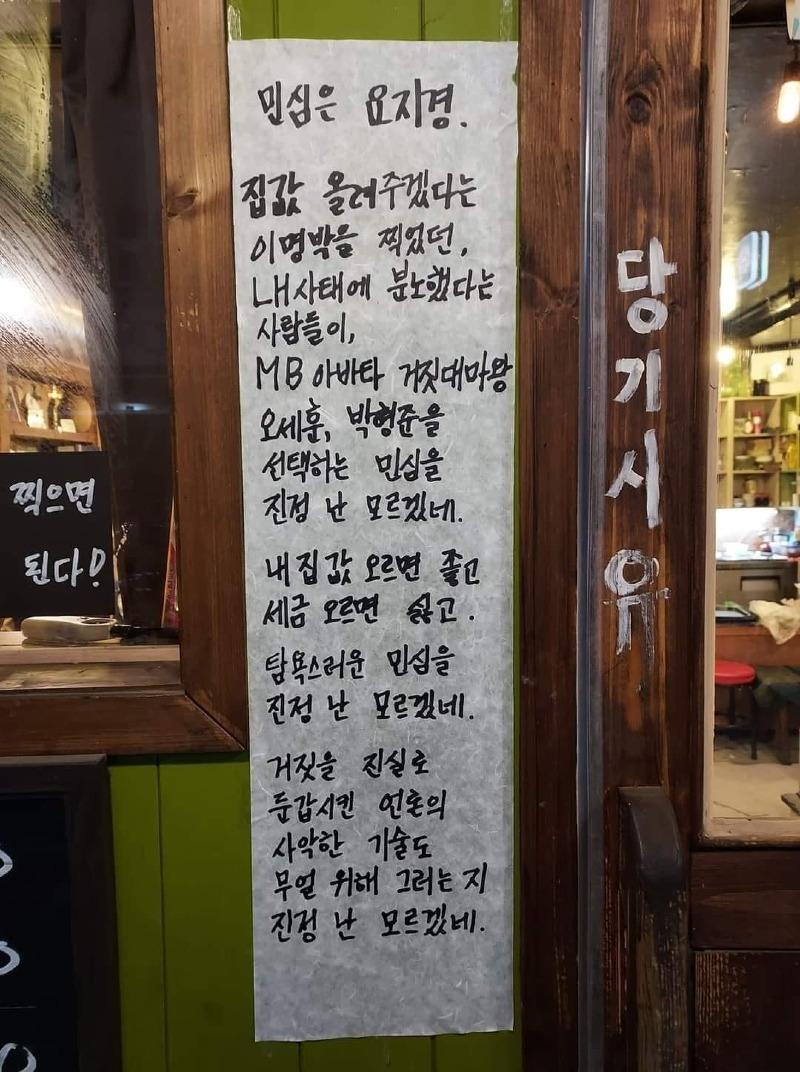 민심은 요지경.
집값 올려주겠다는
이명박을 찍었던,
LH사태에 분노했다는
사람들이,
MB 아바타 거짓대마왕
오세훈, 박형준을
선택하는 민심을
진정 난 모르겠네.
내 집값 오르면 좋고
세금 오르면 싫고.
탐욕스러운 민심을
진정 난 모르겠네.
거짓을 진실로
둔갑시킨 언론의
사악한 기술도
무얼 위해 그러는지
진정 난 모르겠네.
찍으면
된다!
당기시유